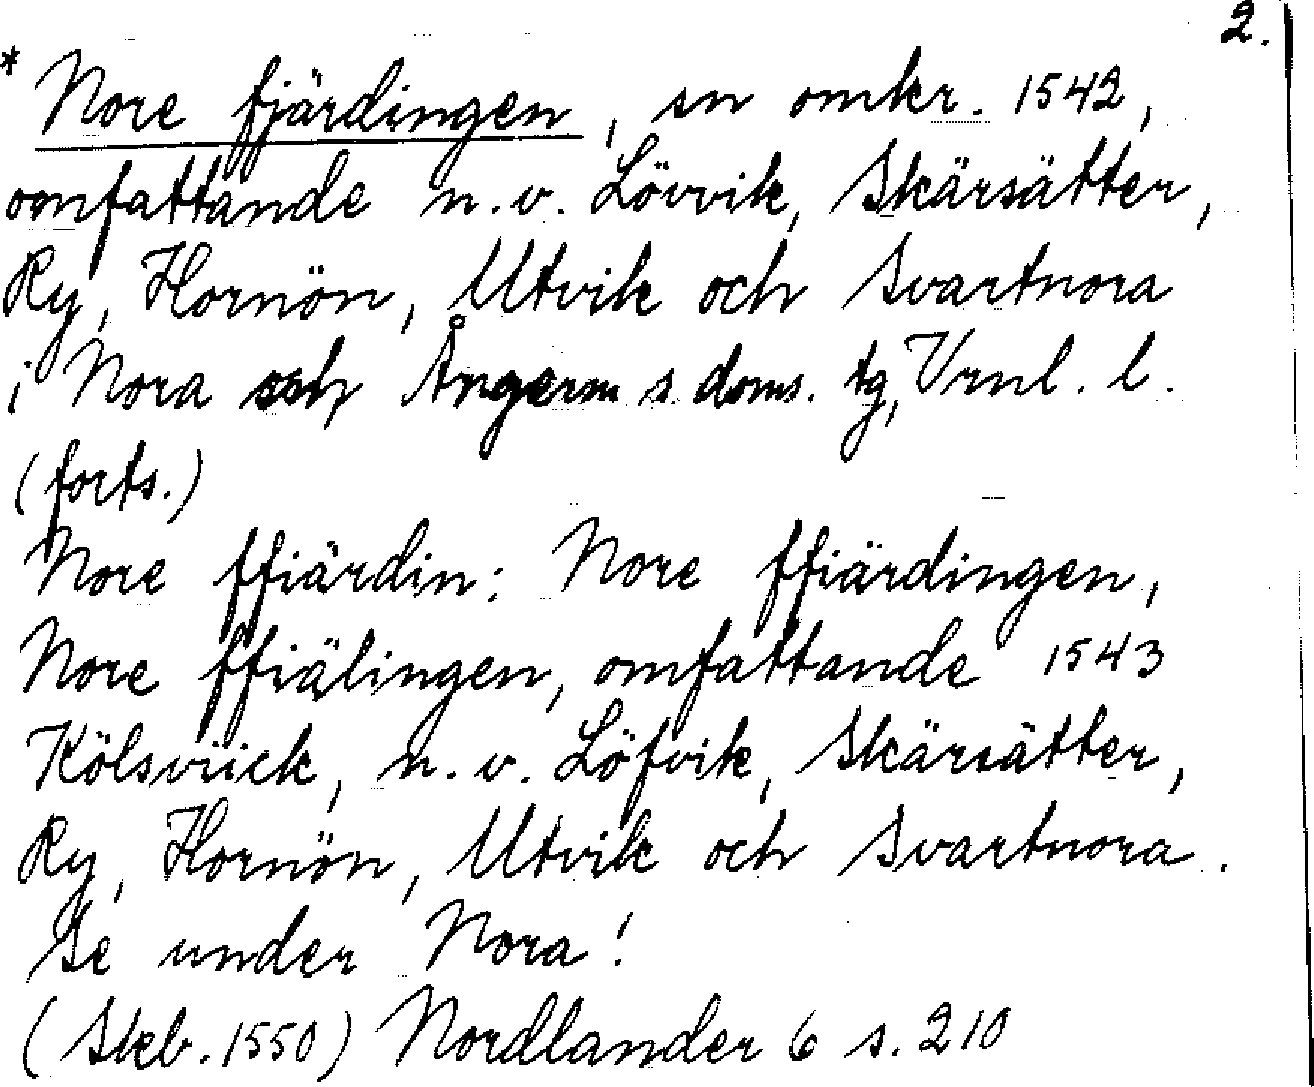 2.
* Nore fjärdingen, en omkr. 1542,
omfattande n.v. Lövvik, Skärsätter,
Ry, Hornön, Utvik och Svartnora
i Nora sch Ångerm s. doms. tg, Vrnl. l.
(forts.)
Nore ffiärdin: Nore ffiärdingen,
Nore ffiälingen, omfattande 1543
Kölsviick, n.v. Löfvik, Skärsätter,
Ry, Hornön, Utvik och Svartnora.
Se under Nora!
(Skb. 1550) Nordlander 6 s. 210